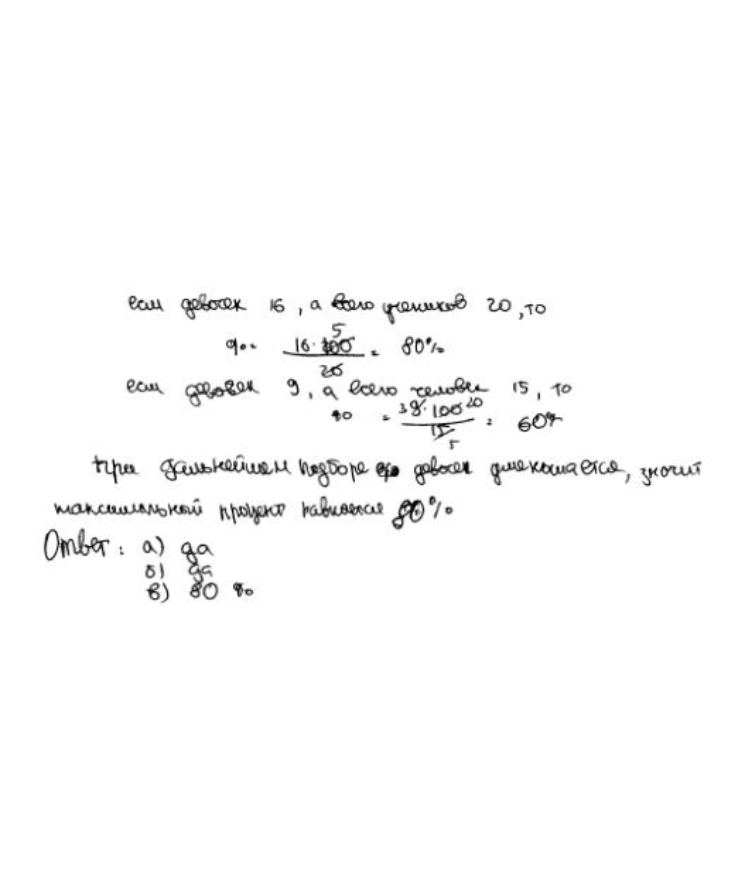 если девочек 16, а всего учеников 20, то
% = 16·100 5 / 20 = 80%
если девочек 9, а всего человек 15, то
% = 3 9·100 20 / 15 5 = 60%
при дальнейшем подборе девочек уменьшается, значит
максимальный процент равняется 80%
Ответ: а) да
б) да
в) 80 %